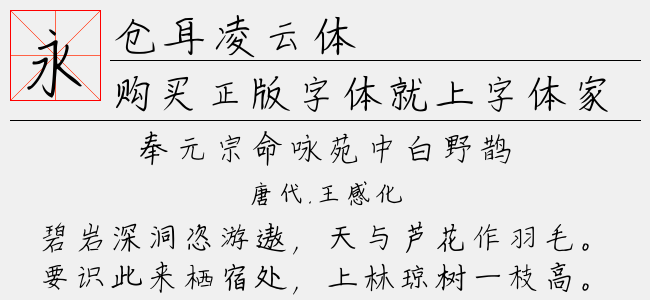 永
仓耳凌云体
购买正版字体就上字体家
奉元宗命咏苑中白野鹊
唐代.王感化
碧岩深洞恣游遨，天与芦花作羽毛。
要识此来栖宿处，上林琼树一枝高。